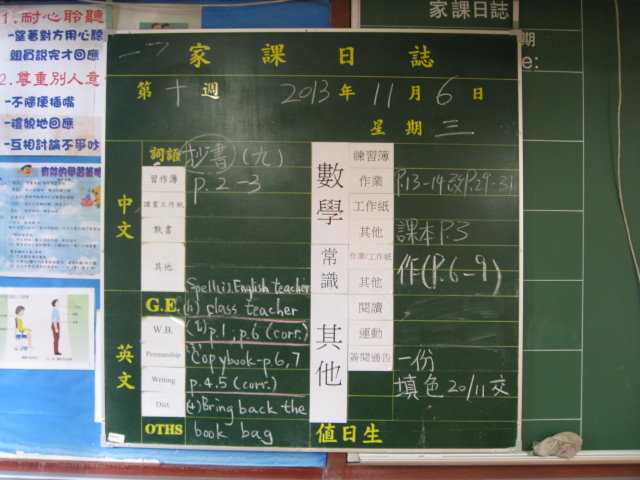 1.耐心聆聽
-望著對方用心聽
組員說完才回應
2.尊重別人意
-不隨便插嘴
-禮貌地回應
-互相討論不爭吵
家課日誌
家課日誌
第十週 2013年11月6日
星期三
期
e:
中文
詞語 抄書(九)
習作簿 p.2-3
課業工作紙
默書
其他
英文
Spell(ii) English teacher
G.E. (h) class teacher
W.B. p.1; p.6 (corr.)
Penmanship Copybook-p.6,7
Writing p.4.5 (corr.)
Dict. (4) Bring back the
OTHS book bag
數學
練習簿
作業 P.13-14改P.29-31
工作紙
其他 課本P.3
常識
作業/工作紙 作(P.6-9)
其他
其他
閱讀
運動
簽閱通告 一份
填色20/11交
值日生